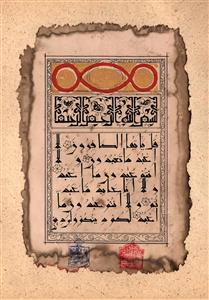 بسم الله الرحمن الرحيم
قل يايها الكافرون لا
اعبد ما تعبدون ولا ا
نتم عبدون ما اعبد
ولا انا عابد ما عبد
تم ولا انتم عبدون ما
اعبد لكم دينكم ولي دين